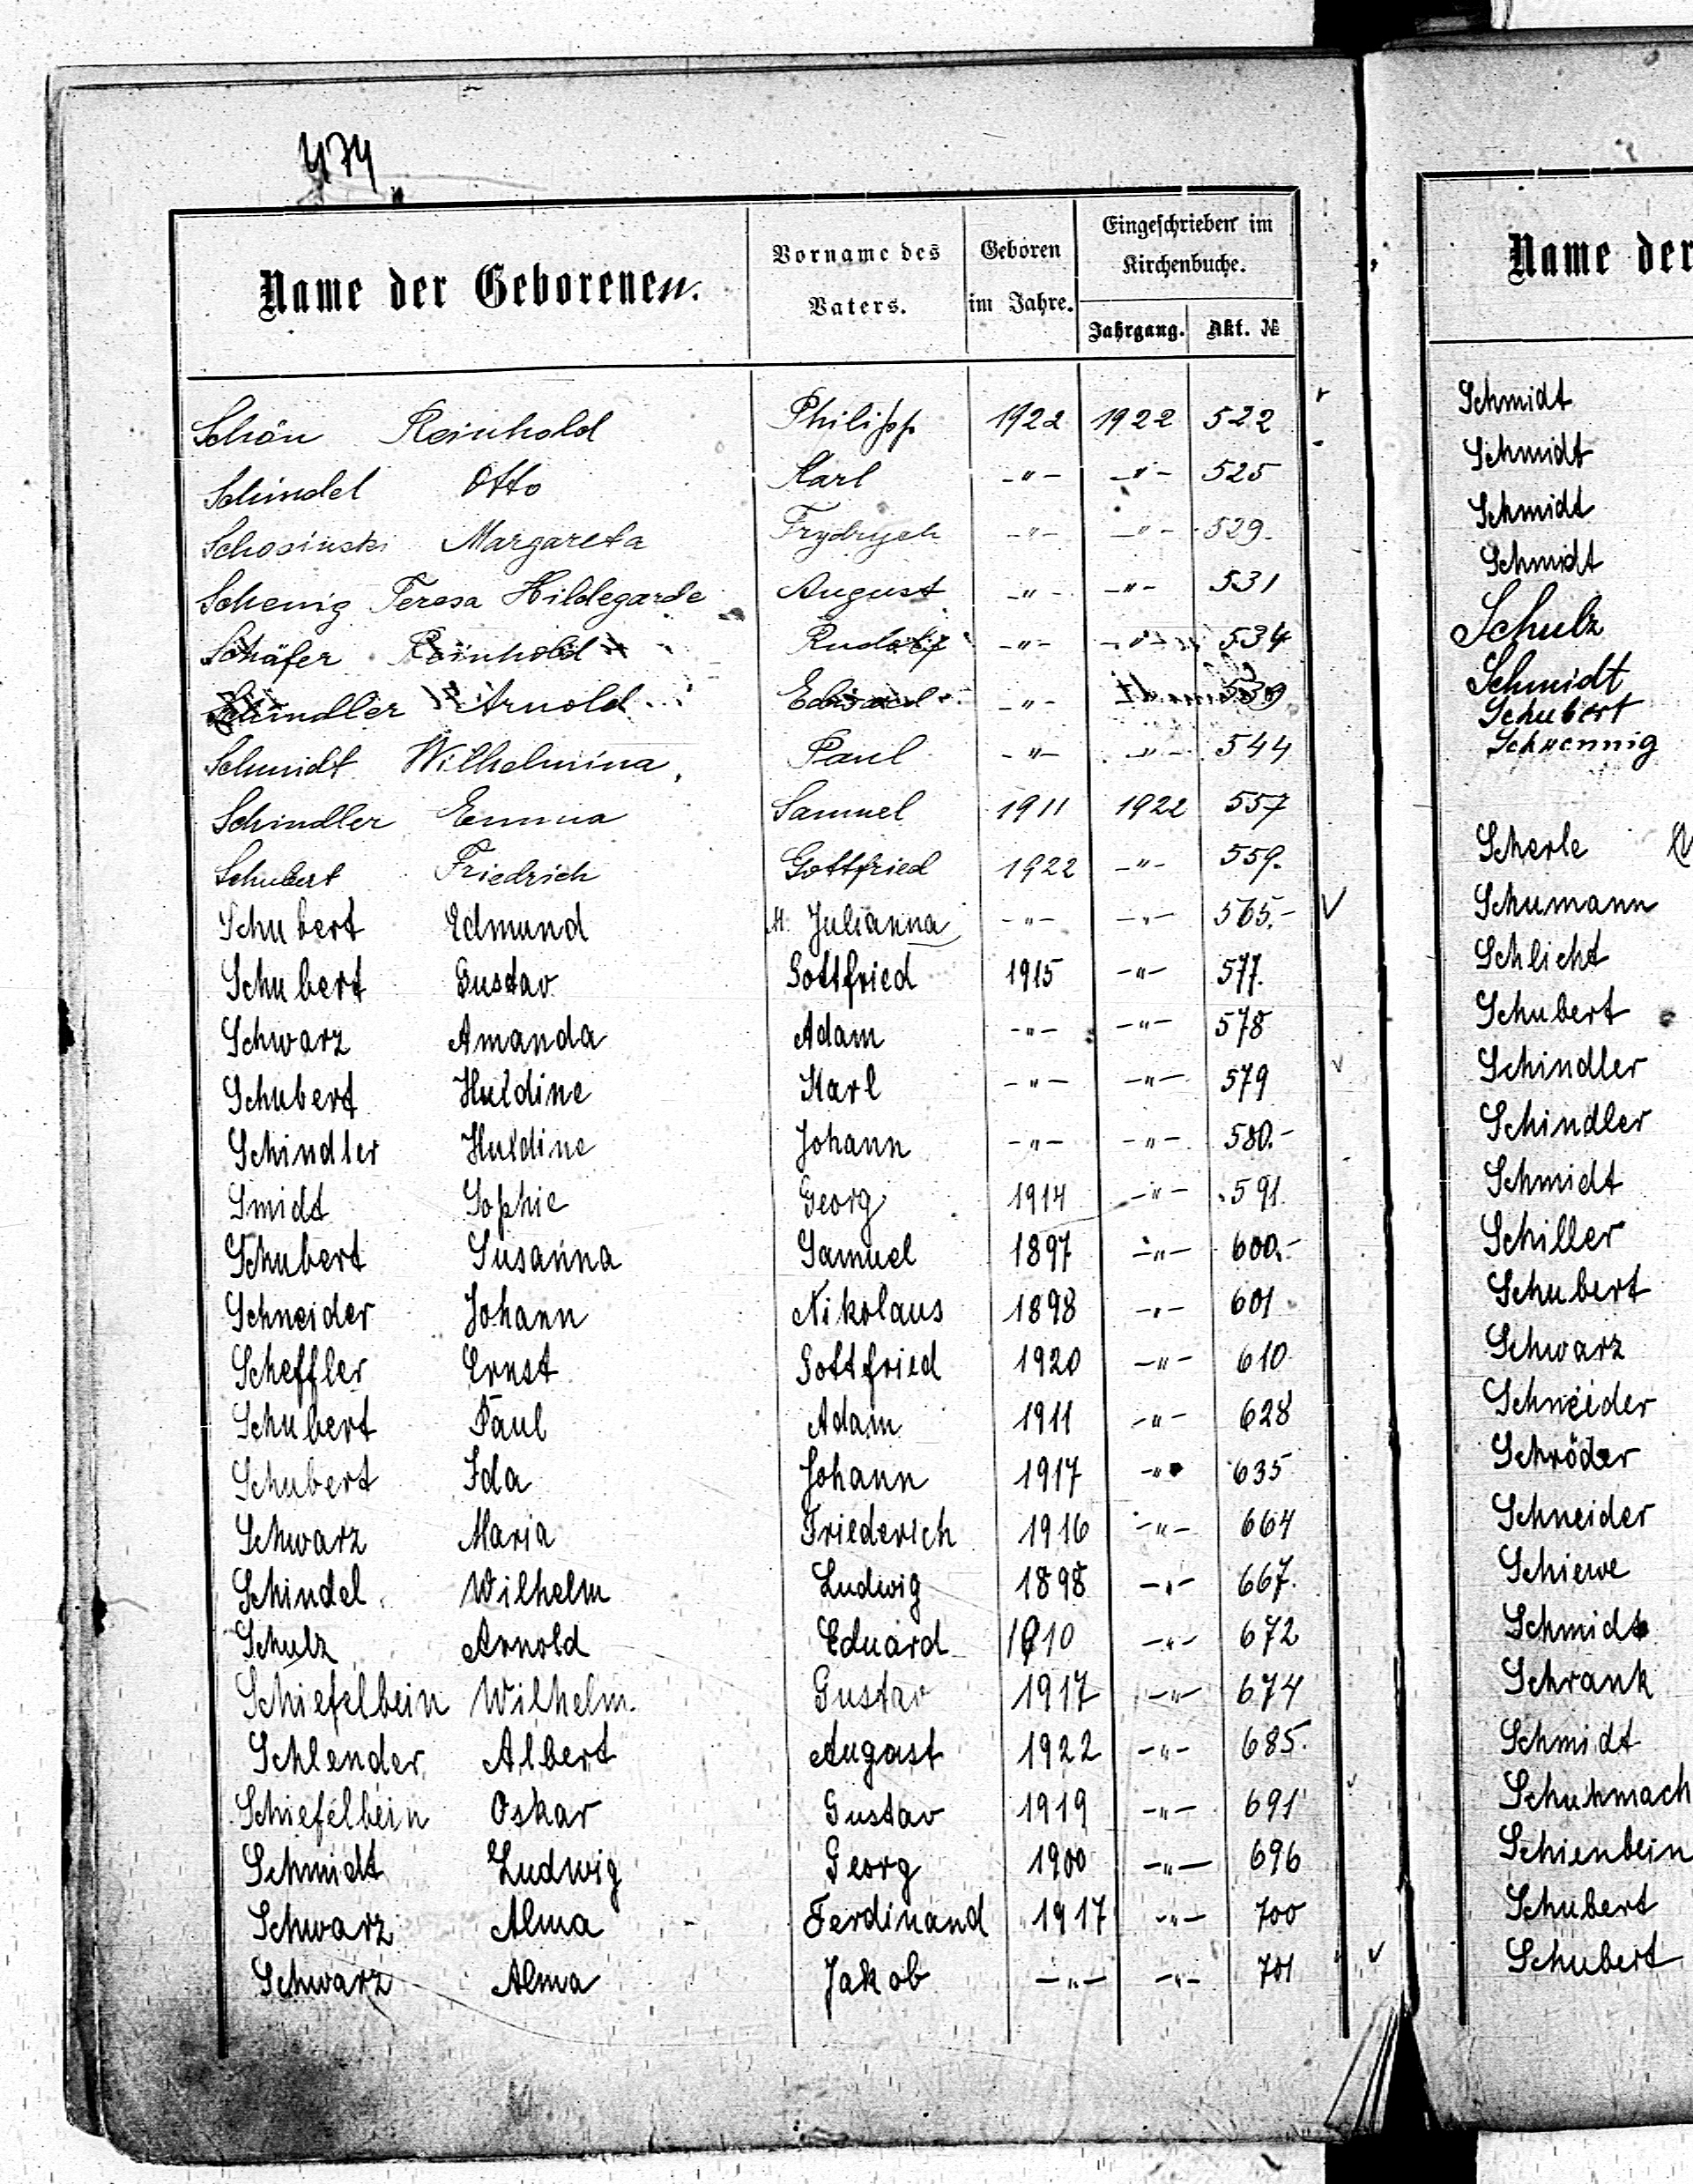 474
Name der Geborenen.
Vorname des Vaters.
Geboren im Jahre.
Eingeschrieben im Kirchenbuche.
Jahrgang. Akt. №
Schön Reinhold Philipp 1922 1922 522
Schindel Otto Karl -"- -"- 525
Schosinski Margareta Frydrych -"- -"- 529.
Schenig Teresa Hildegarde August -"- -"- 531
Schäfer Reinhold Rudolf -"- -"- 534
Schindler Arnold Eduard -"- 539
Schmidt Wilhelmina Paul -"- -"- 544
Schindler Emma Samuel 1911 1922 557
Schubert Friedrich Gottfried 1922 -"- 559.
Schubert Edmund M. Julianna -"- -"- 565.-
Schubert Gustav Gottfried 1915 -"- 577.
Schwarz Amanda Adam -"- -"- 578
Schubert Huldine Karl -"- -"- 579
Schindler Huldine Johann -"- -"- 580.-
Smidt Sophie Georg 1914 -"- 591
Schubert Susanna Samuel 1897 -"- 600.-
Schneider Johann Nikolaus 1898 -"- 601
Scheffler Ernst Gottfried 1920 -"- 610
Schubert Paul Adam 1911 -"- 628
Schubert Ida Johann 1917 -"- 635
Schwarz Maria Friederich 1916 -"- 664
Schindel Wilhelm Ludwig 1898 -"- 667.
Schulz Arnold Eduard 1910 -"- 672
Schiefelbein Wilhelm. Gustav 1917 -"- 674
Schlender Albert August 1922 -"- 685.
Schiefelbein Oskar Gustav 1919 -"- 691
Schmidt Ludwig Georg 1900 -"- 696
Schwarz Alma Ferdinand 1917 -"- 700
Schwarz Alma Jakob -"- -"- 701
Name der
Schmidt
Schmidt
Schmidt
Schmidt
Schulz
Schmidt
Schubert
Schoennig
Scherle
Schumann
Schlicht
Schubert
Schindler
Schindler
Schmidt
Schiller
Schubert
Schwarz
Schneider
Schröder
Schneider
Schiewe
Schmidt
Schrank
Schmidt
Schuhmach
Schienbein
Schubert
Schubert